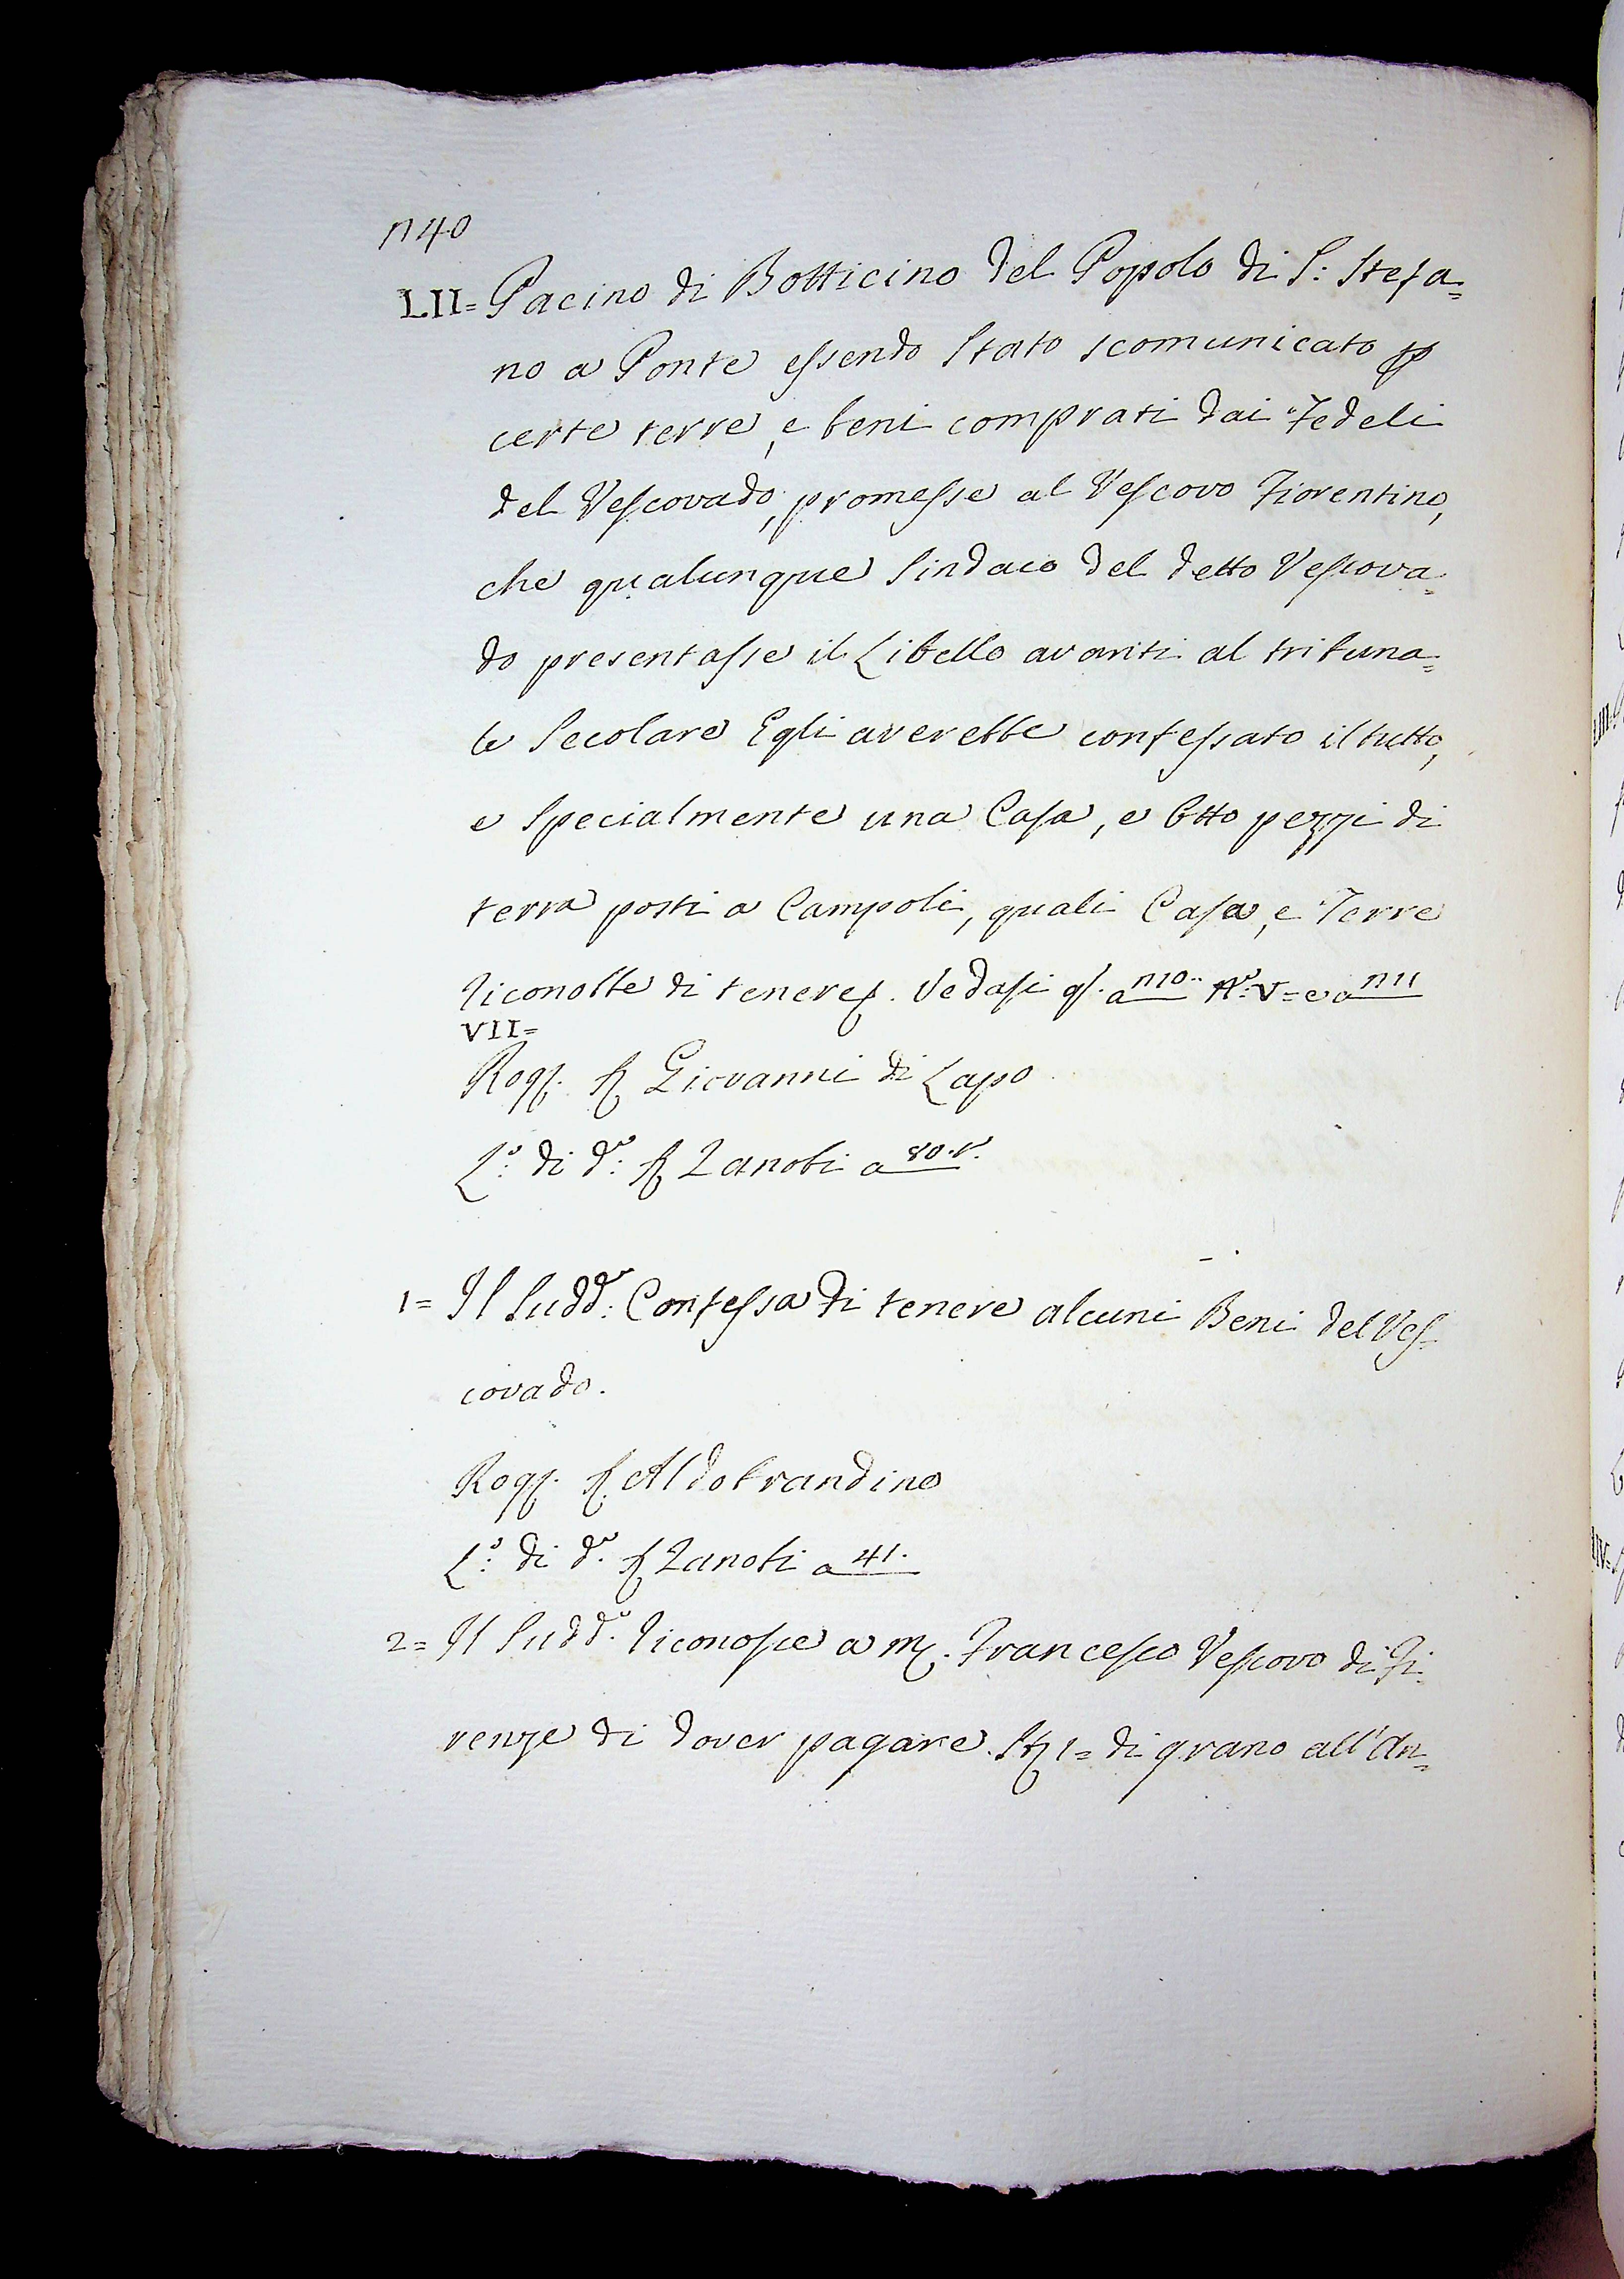 1140
LII= Pacino di Botticino del Popolo di S: Stefa=
no a Ponte essendo stato scomunicato p
certe terre, e beni comprati dai Fedeli
del Vescovado, promesse al Vescovo Fiorentino,
che qualunque Sindaco del detto Vescova=
do presentasse il Libello avanti al tribuna=
le Secolare Egli averebbe confessato il tutto,
e specialmente una Casa, e Otto pezzi di
terra posti a Campoli, quali Casa, e Terre
riconobbe di tenere. Vedasi qs. a 1110.. N.o: V= e a 1111
VII=
Rog. S Giovanni di Lapo
L.o: di d.o: S Zanobi a 80.v.
1= Il Sudd.o: Confessa di tenere alcuni Beni del Ves=
covado.
Rog. S Aldobrandino
L.o: di d.o. S Zanobi a 41.
2= Il Sudd.o. riconosce a M. Francesco Vescovo di Fi=
renze di dover pagare. St 1= di grano all'An=